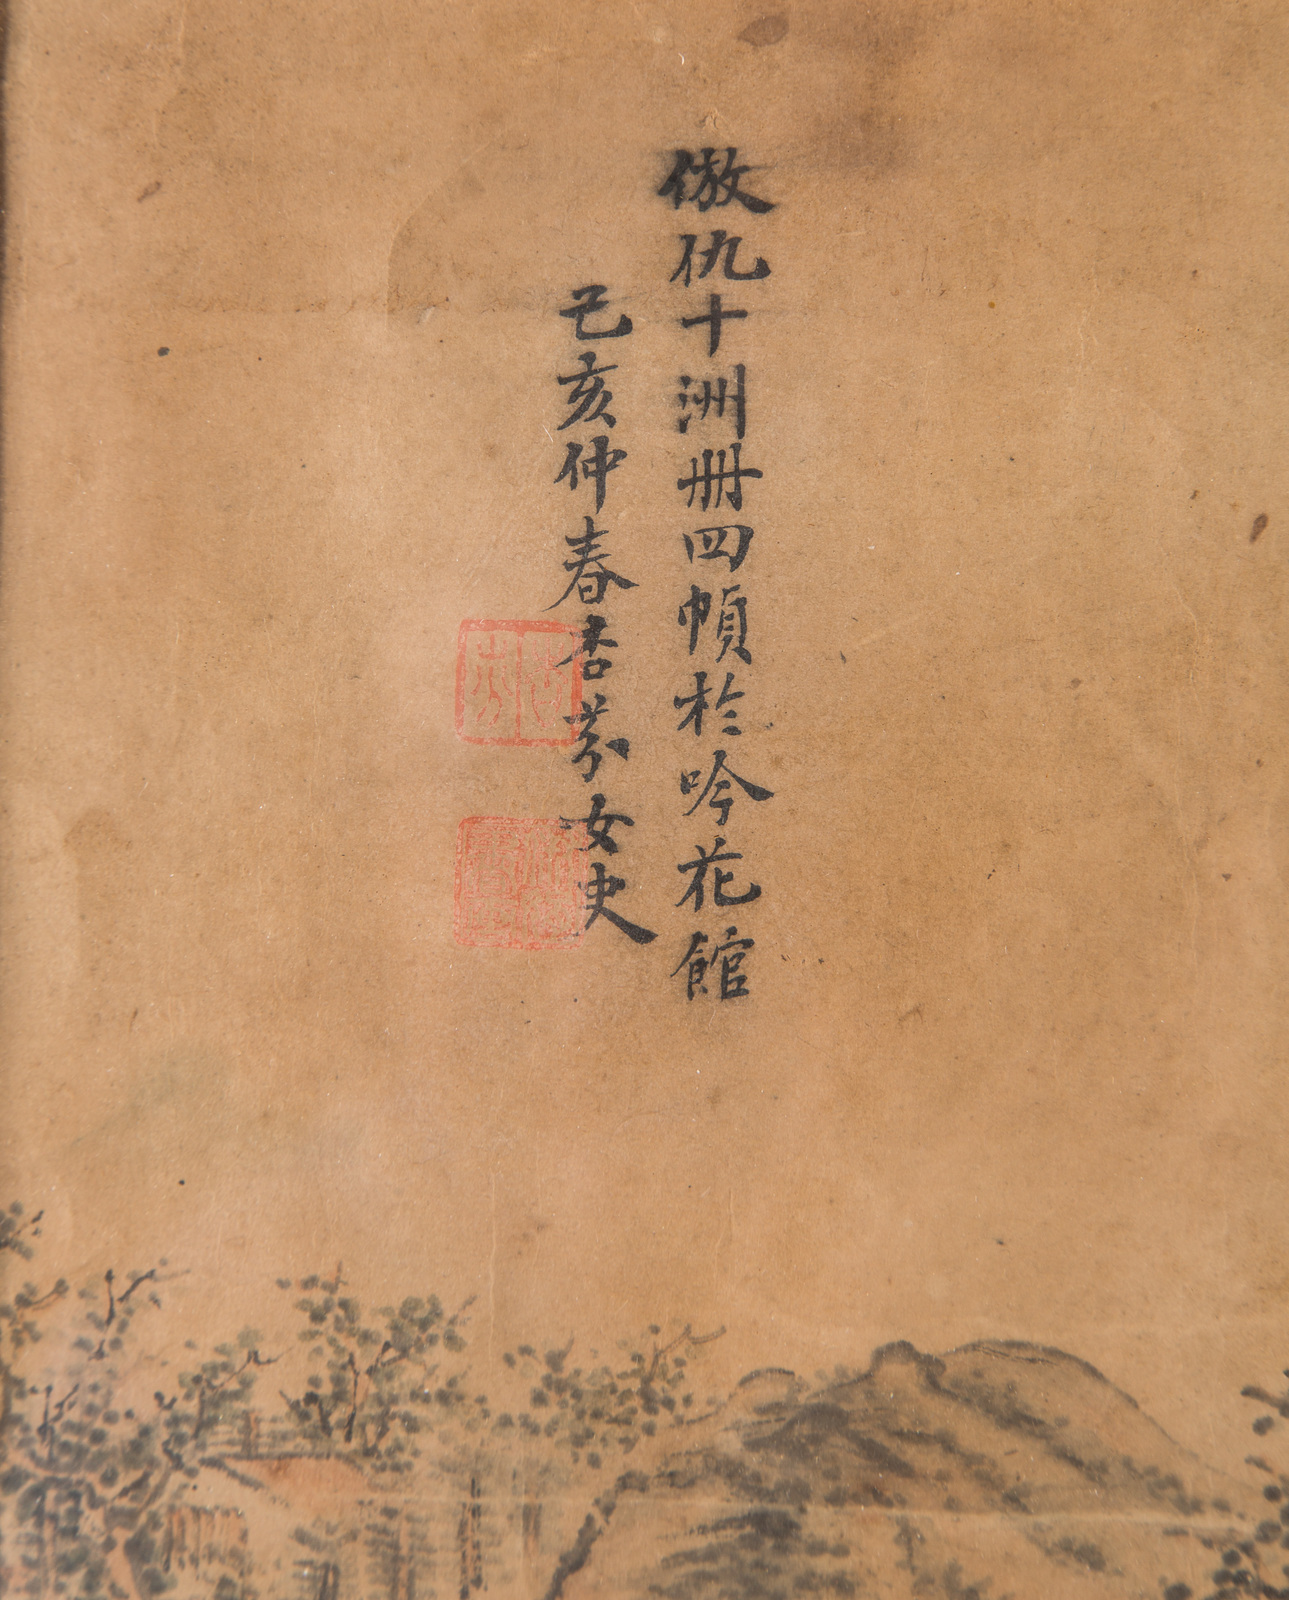 倣仇十洲冊四幀於吟花館
己亥仲春杏芬女史